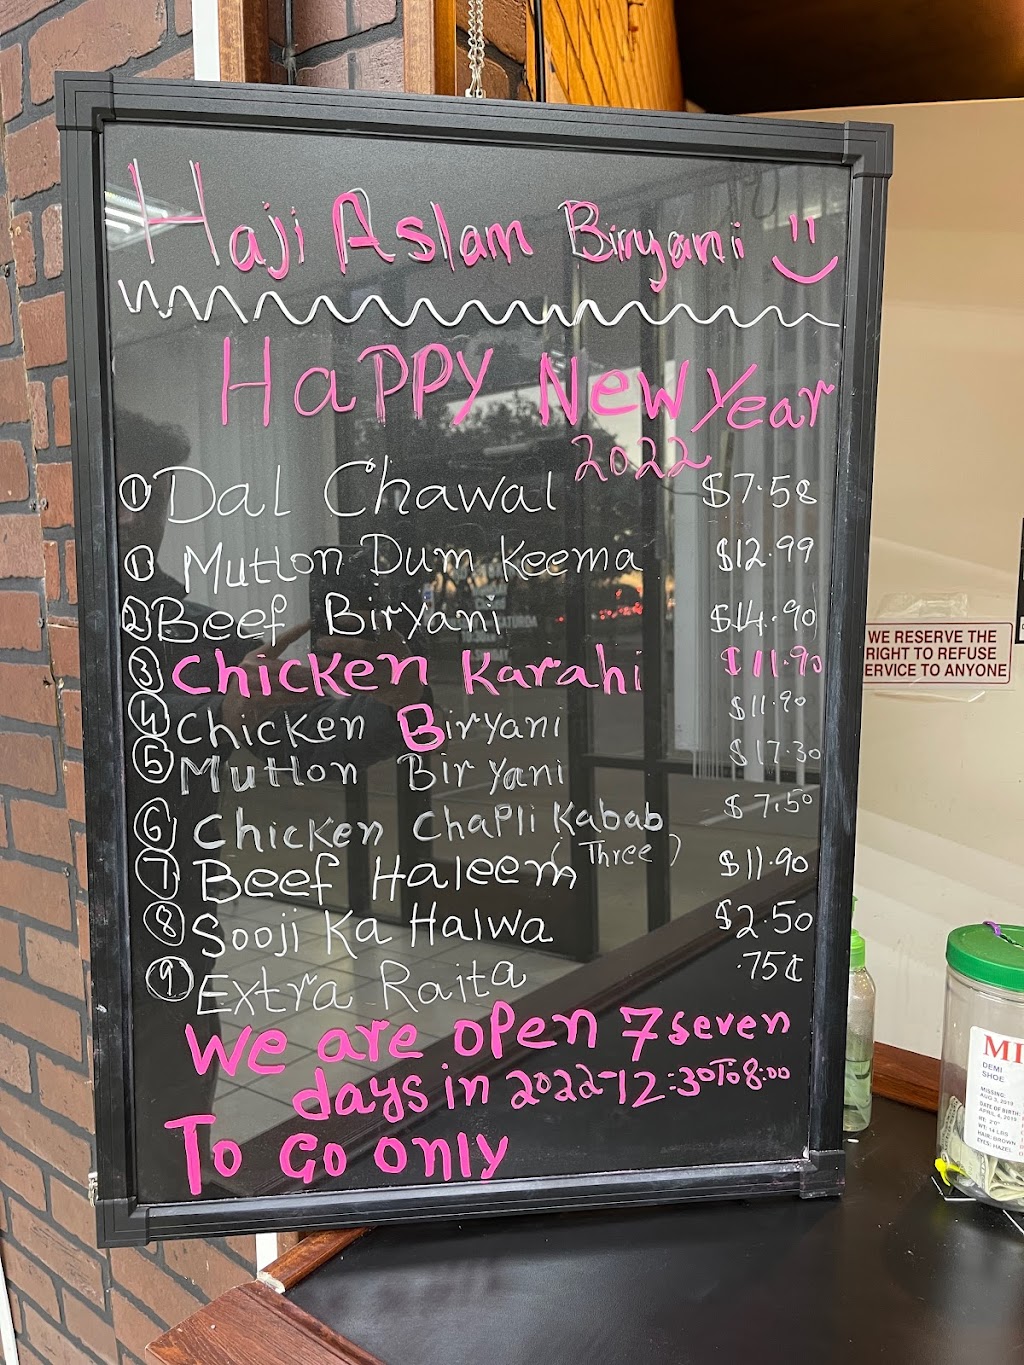 Haji Aslam Biryani
HaPPY New Year
2022
① Dal Chawal $7.58
① Mutton Dum Keema $12.99
② Beef Biryani $14.90
③ Chicken Karahi $11.90
④ Chicken Biryani $11.90
⑤ Mutton Biryani $17.30
⑥ Chicken Chapli Kabab $7.50
(Three)
⑦ Beef Haleem $11.90
⑧ Sooji Ka Halwa $2.50
⑨ Extra Raita .75¢
We are open 7 seven
days in 2022-12:30 To 8:00
To Go only
WE RESERVE THE
RIGHT TO REFUSE
ERVICE TO ANYONE
MI
DEMI
SHOE
MISSING:
AUG 3, 2019
DATE OF BIRTH:
APRIL 4, 2019
HT: 2'0"
WT: 14 LBS
HAIR: BROWN
EYES: HAZEL